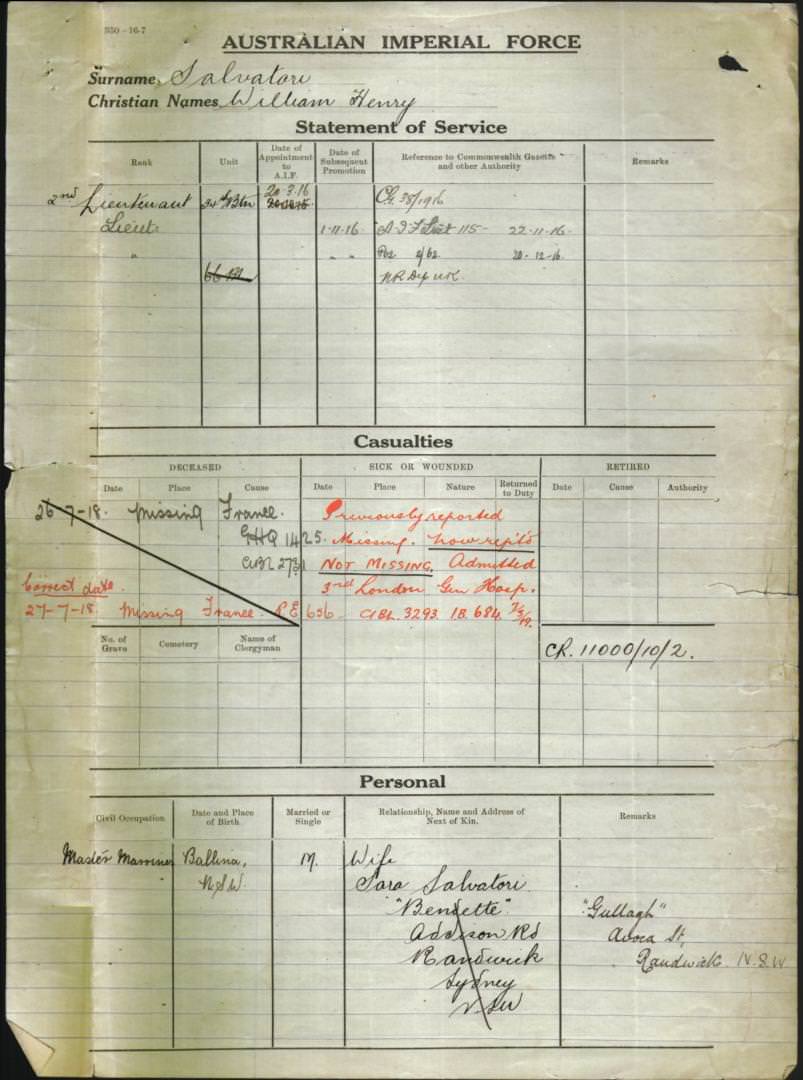 S50-16-7
AUSTRALIAN IMPERIAL FORCE
Surname, Salvatori
Christian Names, William Henry
Statement of Service
Rank Unit Date of Appointment to A.I.F. Date of Subsequent Promotion Reference to Commonwealth Gazette and other Authority Remarks
2nd Lieutenant 34th Btn 20.3.16 CG. 38/1916
Lieut 1-11-16 A.I.F List 115- 22-11-16.
" " " 2/62 20-12-16.
66 Bn
Casualties
DECEASED SICK OR WOUNDED RETIRED
Date Place Cause Date Place Nature Returned to Duty Date Cause Authority
26-7-18. Missing France. Previously reported
GHQ 1425. Missing. now rept'd
NOT MISSING. Admitted
Correct date. 3rd London Gen Hosp.
27-7-18. Missing France. P.E 656. CBL. 3293 1B. 684
No. of Grave Cemetery Name of Clergyman
CR. 11000/10/2.
Personal
Civil Occupation Date and Place of Birth Married or Single Relationship, Name and Address of Next of Kin. Remarks
Master Marriner Ballina, M. Wife
N.S.W. Sara Salvatori
"Bendette" "Gullagh"
Addison Rd Avoca St,
Randwick Randwick N.S.W
Sydney
N.S.W